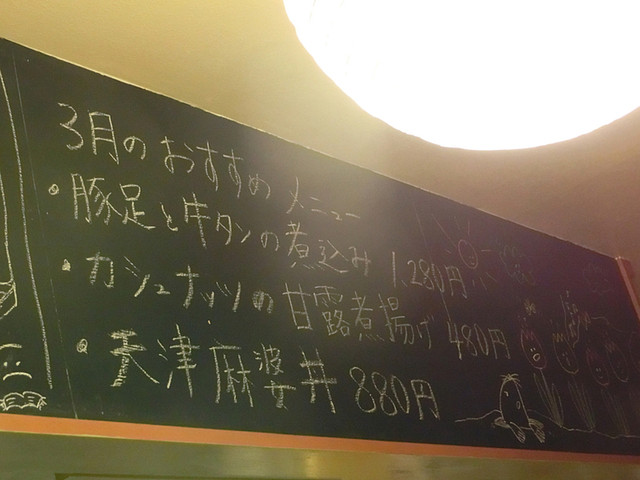 3月のおすすめメニュー
・豚足と牛タンの煮込み 1,280円
・カシューナッツの甘露煮揚げ 480円
・天津麻婆丼 880円